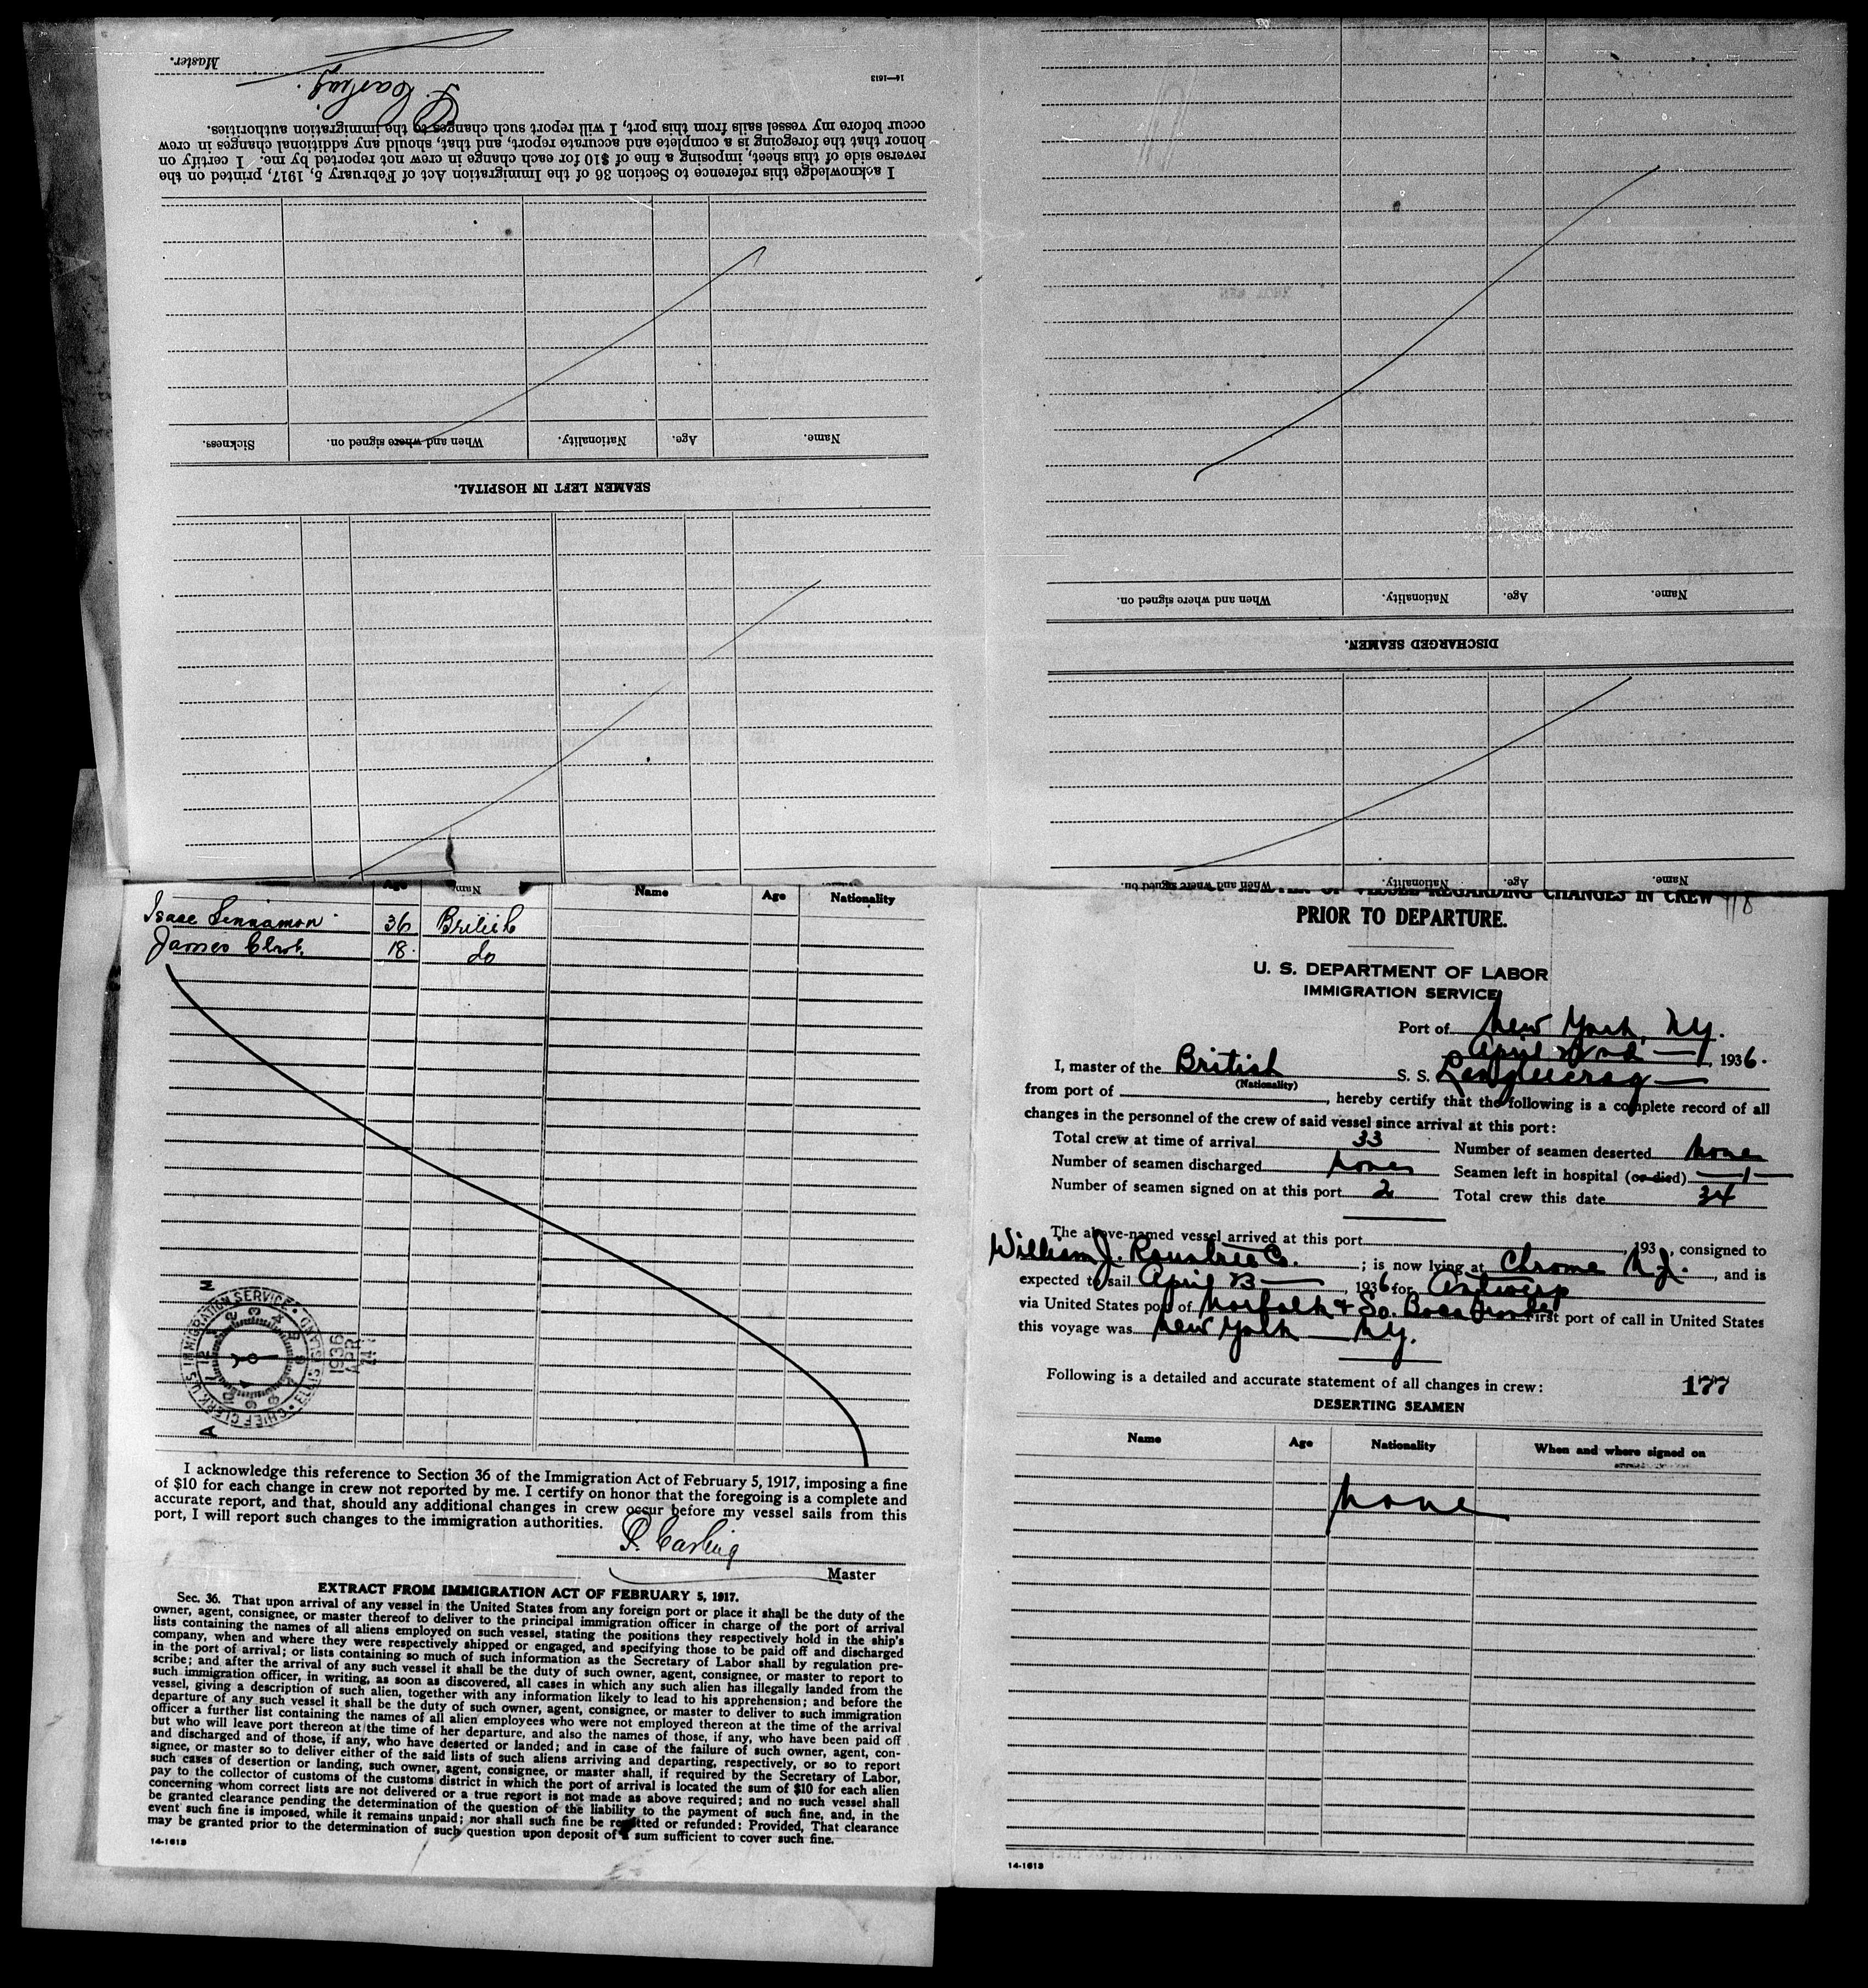 Master.
P. Carling
14—1613
I acknowledge this reference to Section 36 of the Immigration Act of February 5, 1917, printed on the
reverse side of this sheet, imposing a fine of $10 for each change in crew not reported by me. I certify on
honor that the foregoing is a complete and accurate report, and that, should any additional changes in crew
occur before my vessel sails from this port, I will report such changes to the immigration authorities.
SEAMEN LEFT IN HOSPITAL.
Name. Age. Nationality. When and where signed on. Sickness.
DISCHARGED SEAMEN.
Name. Age. Nationality. When and where signed on.
Name. Age. Nationality. When and where signed on.
Age Name Name Age Nationality
Isaac 36 British
James 18 do
CHIEF CLERK U.S. IMMIGRATION SERVICE
ELLIS ISLAND
1936
APR
I acknowledge this reference to Section 36 of the Immigration Act of February 5, 1917, imposing a fine
of $10 for each change in crew not reported by me. I certify on honor that the foregoing is a complete and
accurate report, and that, should any additional changes in crew occur before my vessel sails from this
port, I will report such changes to the immigration authorities.
P. Carling
Master
EXTRACT FROM IMMIGRATION ACT OF FEBRUARY 5, 1917.
Sec. 36. That upon arrival of any vessel in the United States from any foreign port or place it shall be the duty of the
owner, agent, consignee, or master thereof to deliver to the principal immigration officer in charge of the port of arrival
lists containing the names of all aliens employed on such vessel, stating the positions they respectively hold in the ship's
company, when and where they were respectively shipped or engaged, and specifying those to be paid off and discharged
in the port of arrival; or lists containing so much of such information as the Secretary of Labor shall by regulation pre-
scribe; and after the arrival of any such vessel it shall be the duty of such owner, agent, consignee, or master to report to
such immigration officer, in writing, as soon as discovered, all cases in which any such alien has illegally landed from the
vessel, giving a description of such alien, together with any information likely to lead to his apprehension; and before the
departure of any such vessel it shall be the duty of such owner, agent, consignee, or master to deliver to such immigration
officer a further list containing the names of all alien employees who were not employed thereon at the time of the arrival
but who will leave port thereon at the time of her departure, and also the names of those, if any, who have been paid off
and discharged and of those, if any, who have deserted or landed; and in case of the failure of such owner, agent, con-
signee, or master so to deliver either of the said lists of such aliens arriving and departing, respectively, or so to report
such cases of desertion or landing, such owner, agent, consignee, or master shall, if required by the Secretary of Labor,
pay to the collector of customs of the customs district in which the port of arrival is located the sum of $10 for each alien
concerning whom correct lists are not delivered or a true report is not made as above required; and no such vessel shall
be granted clearance pending the determination of the question of the liability to the payment of such fine, and, in the
event such fine is imposed, while it remains unpaid; nor shall such fine be remitted or refunded: Provided, That clearance
may be granted prior to the determination of such question upon deposit of a sum sufficient to cover such fine.
14-1613
OF VESSEL REGARDING CHANGES IN CREW
PRIOR TO DEPARTURE.
U. S. DEPARTMENT OF LABOR
IMMIGRATION SERVICE
Port of New York, N.Y.
April 22nd, 1936.
I, master of the British S. S.
(Nationality)
from port of , hereby certify that the following is a complete record of all
changes in the personnel of the crew of said vessel since arrival at this port:
Total crew at time of arrival 33 Number of seamen deserted none
Number of seamen discharged none Seamen left in hospital (or died) 1
Number of seamen signed on at this port 2 Total crew this date 34
The above-named vessel arrived at this port , 193 , consigned to
William J. Rountree Co. ; is now lying at Chrome N.J. , and is
expected to sail April 23 , 1936 for Antwerp
via United States port of Norfolk & So. First port of call in United States
this voyage was New York N.Y.
Following is a detailed and accurate statement of all changes in crew: 177
DESERTING SEAMEN
Name Age Nationality When and where signed on
none
14-1613